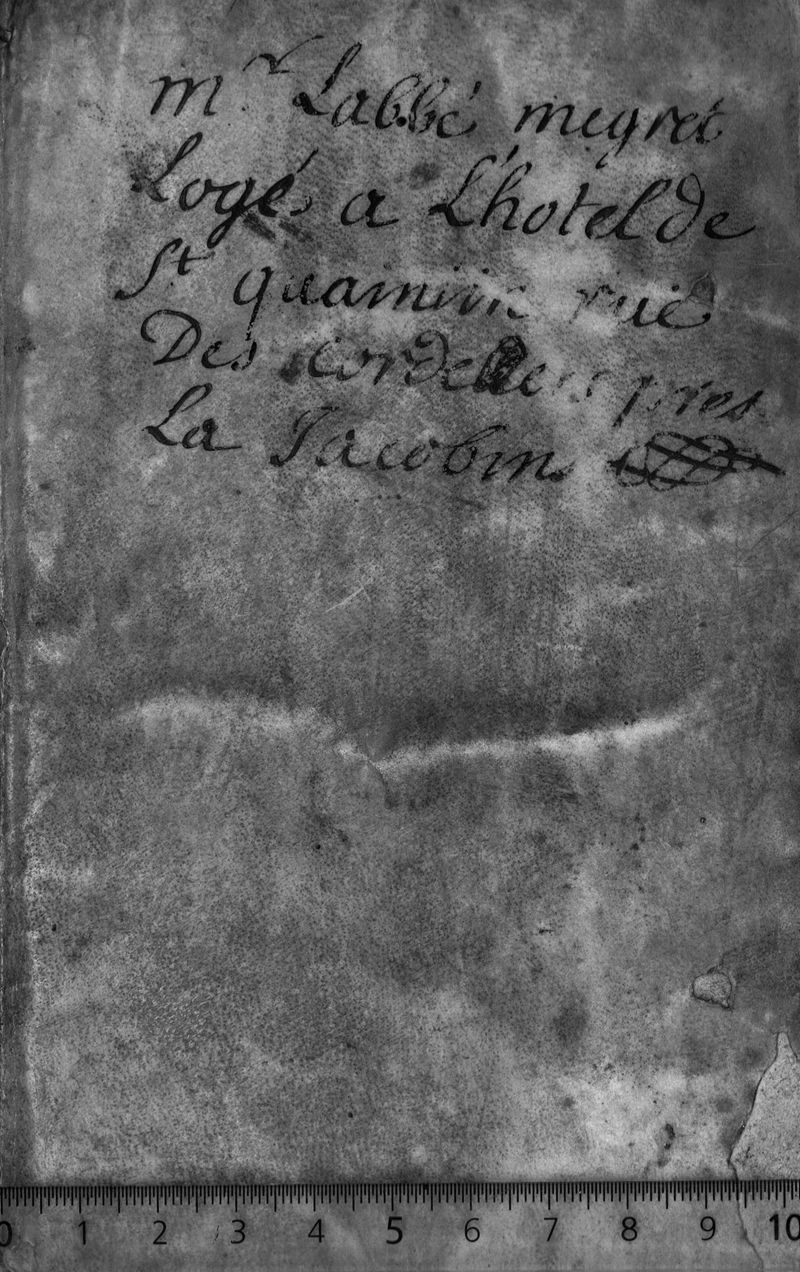 mr Labbé megret
Logés a L'hotel de
St rue
Des cordeliers pres
La Jacobin
0 1 2 3 4 5 6 7 8 9 10